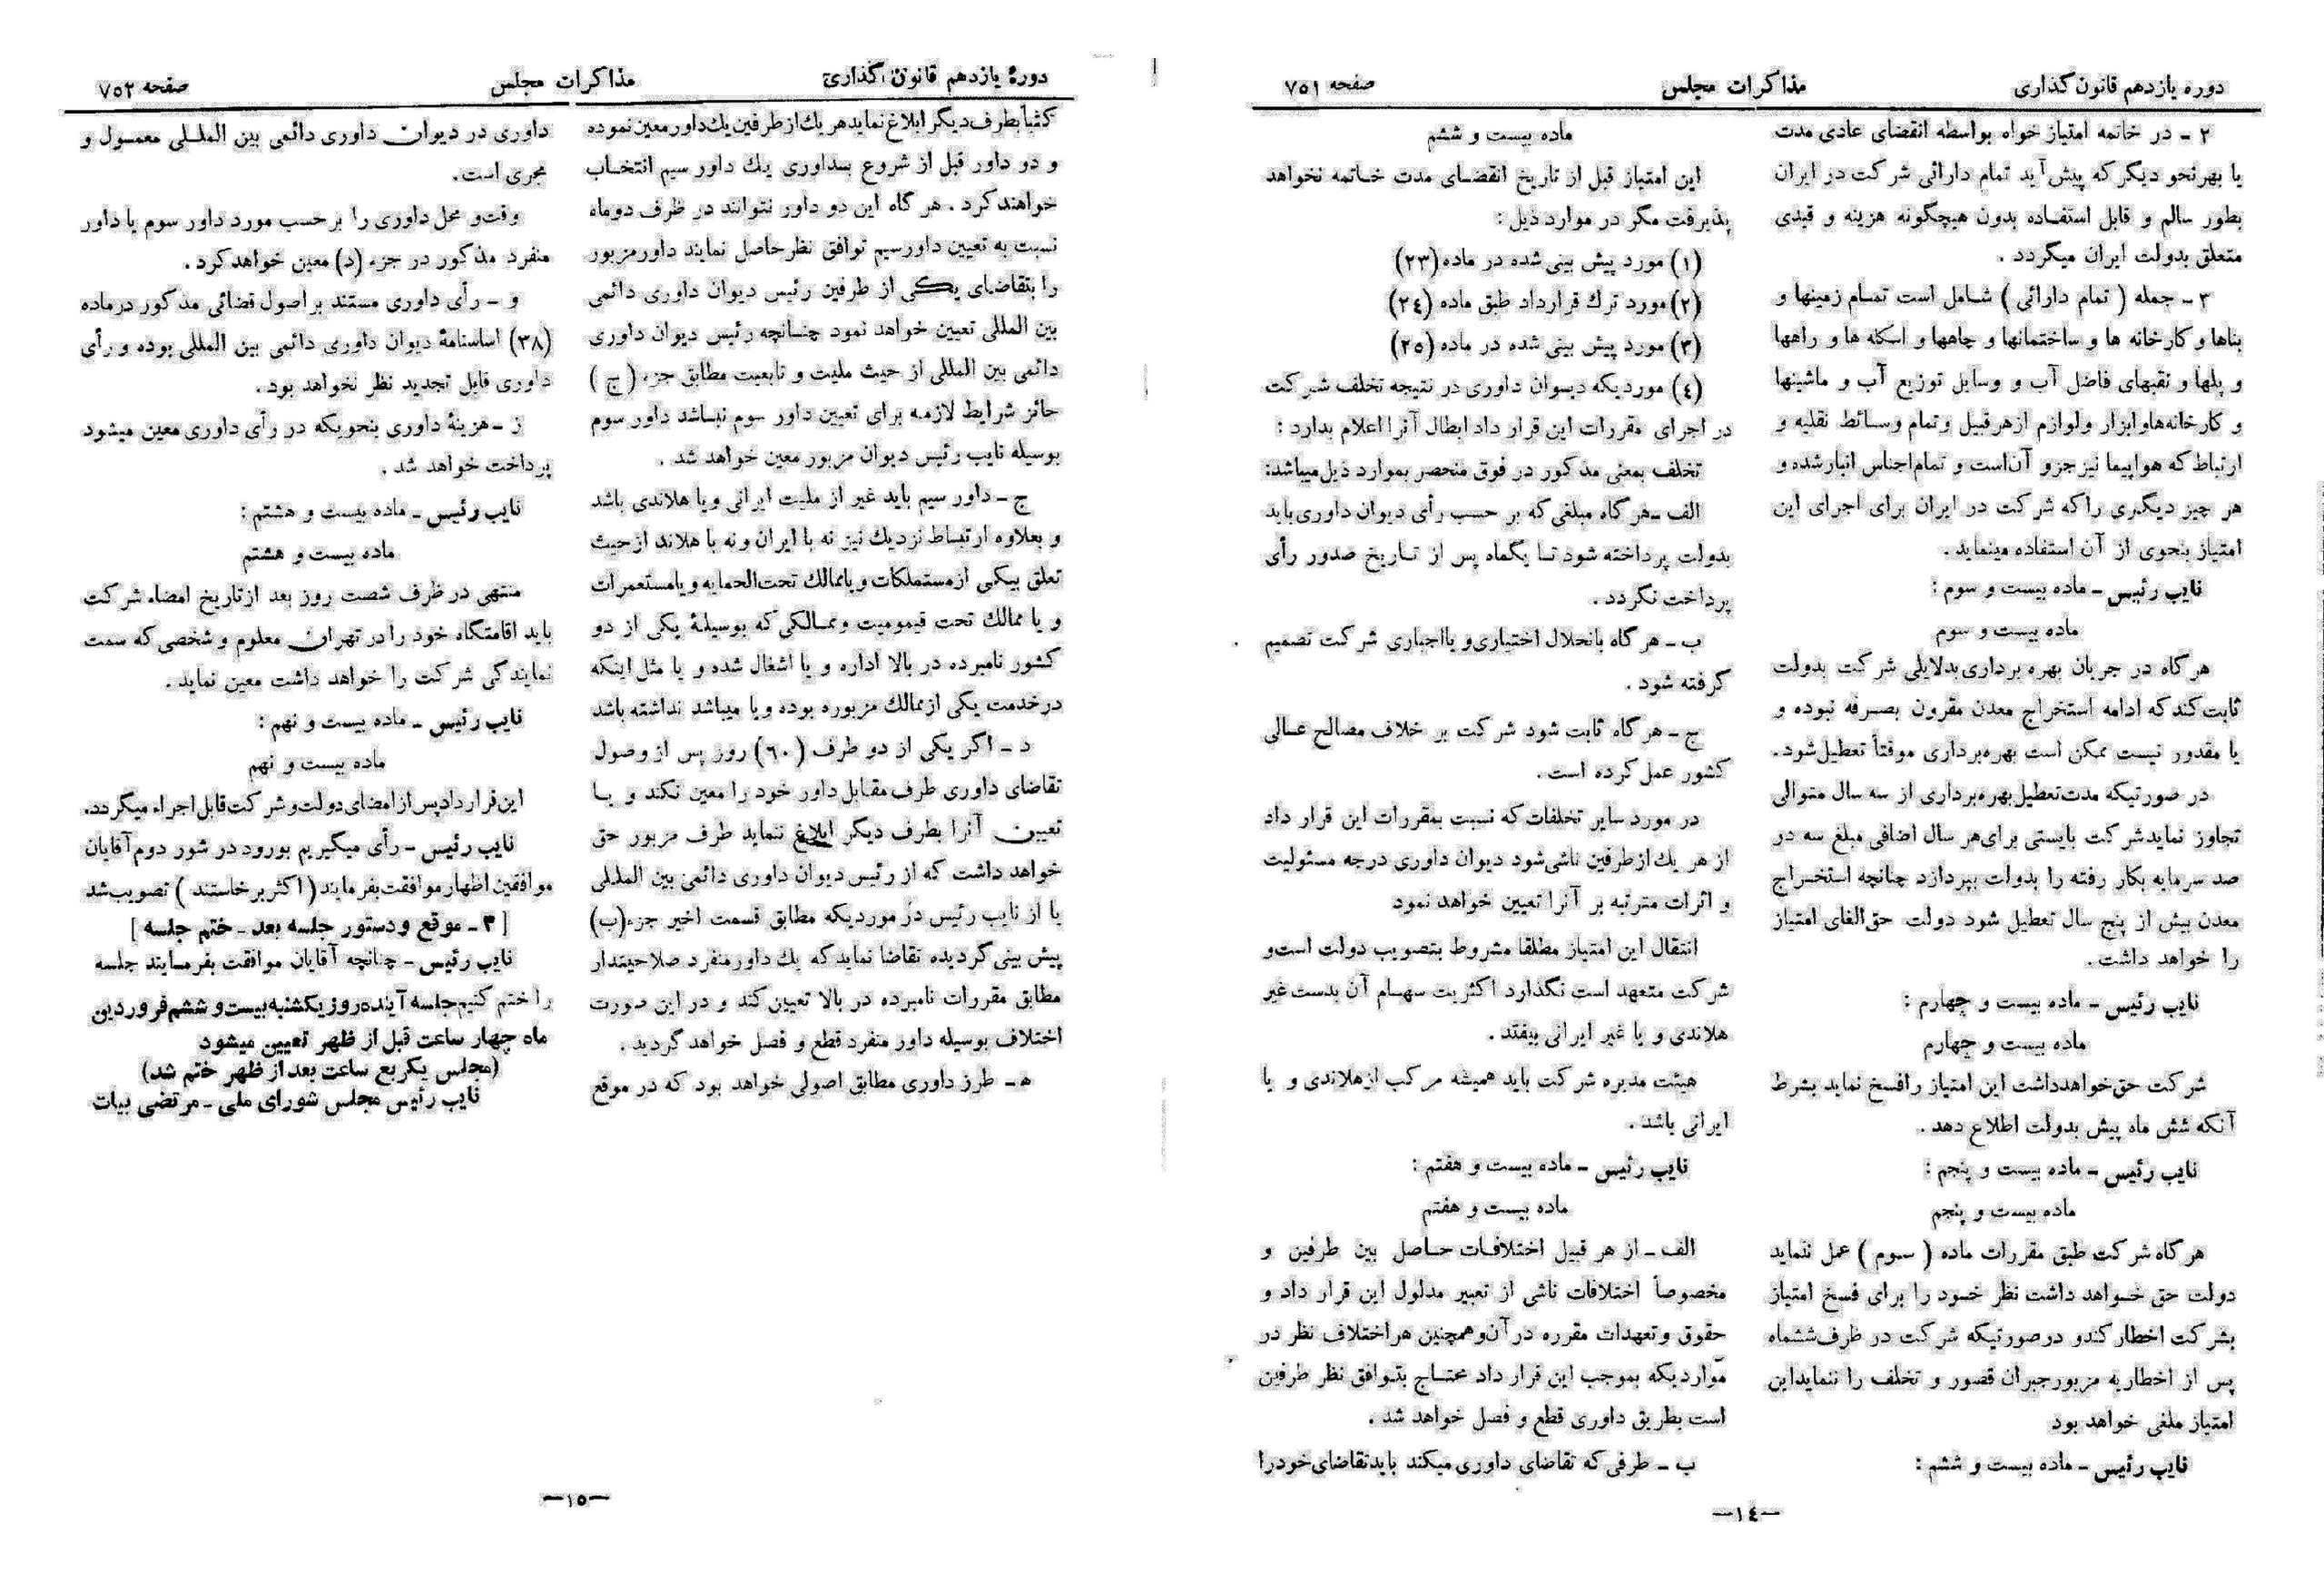 دوره یازدهم قانون گذاری
مذاکرات مجلس
صفحه ۷۵۱
۲ ـ در خاتمه امتیاز خواه بواسطه انقضای عادی مدت
یا بهر نحو دیگر که پیش آید تمام دارائی شرکت در ایران
بطور سالم و قابل استفاده بدون هیچگونه هزینه و قیدی
متعلق بدولت ایران میگردد .
۳ ـ جمله ( تمام دارائی ) شامل است تمام زمینها و
بناها و کارخانه ها و ساختمانها و چاهها و اسکله ها و راهها
و پلها و نقبهای فاضل آب و وسایل توزیع آب و ماشینها
و کارخانه‌ها و ابزار و لوازم از هر قبیل و تمام وسائط نقلیه و
ارتباط که هواپیما نیز جزو آن است و تمام اجناس انبار شده و
هر چیز دیگری را که شرکت در ایران برای اجرای این
امتیاز بنحوی از آن استفاده مینماید .
نایب رئیس ـ ماده بیست و سوم :
ماده بیست و سوم
هر گاه در جریان بهره برداری بدلایلی شرکت بدولت
ثابت کند که ادامه استخراج معدن مقرون بصرفه نبوده و
یا مقدور نیست ممکن است بهره‌برداری موقتاً تعطیل شود.
در صورتیکه مدت تعطیل بهره‌برداری از سه سال متوالی
تجاوز نماید شرکت بایستی برای هر سال اضافی مبلغ سه در
صد سرمایه بکار رفته را بدولت بپردازد چنانچه استخراج
معدن بیش از پنج سال تعطیل شود دولت حق الغای امتیاز
را خواهد داشت .
نایب رئیس ـ ماده بیست و چهارم :
ماده بیست و چهارم
شرکت حق خواهد داشت این امتیاز را فسخ نماید بشرط
آنکه شش ماه پیش بدولت اطلاع دهد .
نایب رئیس ـ ماده بیست و پنجم :
ماده بیست و پنجم
هر گاه شرکت طبق مقررات ماده ( سوم ) عمل ننماید
دولت حق خواهد داشت نظر خود را برای فسخ امتیاز
بشرکت اخطار کند و در صورتیکه شرکت در ظرف ششماه
پس از اخطاریه مزبور جبران قصور و تخلف را ننماید این
امتیاز ملغی خواهد بود
نایب رئیس ـ ماده بیست و ششم :
ماده بیست و ششم
این امتیاز قبل از تاریخ انقضای مدت خاتمه نخواهد
پذیرفت مگر در موارد ذیل :
(۱) مورد پیش بینی شده در ماده (۲۳)
(۲) مورد ترك قرارداد طبق ماده (۲٤)
(۳) مورد پیش بینی شده در ماده (۲۵)
(٤) موردیکه دیوان داوری در نتیجه تخلف شرکت
در اجرای مقررات این قرار داد ابطال آنرا اعلام بدارد :
تخلف بمعنی مذکور در فوق منحصر بموارد ذیل میباشد:
الف ـ هر گاه مبلغی که بر حسب رأی دیوان داوری باید
بدولت پرداخته شود تا یکماه پس از تاریخ صدور رأی
پرداخت نگردد .
ب ـ هر گاه بانحلال اختیاری و یا اجباری شرکت تصمیم
گرفته شود .
ج ـ هر گاه ثابت شود شرکت بر خلاف مصالح عالی
کشور عمل کرده است .
در مورد سایر تخلفات که نسبت بمقررات این قرار داد
از هر یك از طرفین ناشی شود دیوان داوری درجه مسئولیت
و اثرات مترتبه بر آنرا تعیین خواهد نمود
انتقال این امتیاز مطلقا مشروط بتصویب دولت است و
شرکت متعهد است نگذارد اکثریت سهام آن بدست غیر
هلاندی و یا غیر ایرانی بیفتد .
هیئت مدیره شرکت باید همیشه مرکب از هلاندی و یا
ایرانی باشد .
نایب رئیس ـ ماده بیست و هفتم :
ماده بیست و هفتم
الف ـ از هر قبیل اختلافات حاصل بین طرفین و
مخصوصاً اختلافات ناشی از تعبیر مدلول این قرار داد و
حقوق و تعهدات مقرره در آن و همچنین هر اختلاف نظر در
مواردیکه بموجب این قرار داد محتاج بتوافق نظر طرفین
است بطریق داوری قطع و فصل خواهد شد .
ب ـ طرفی که تقاضای داوری میکند باید تقاضای خود را
—۱٤—
دورهٔ یازدهم قانون گذاری
مذاکرات مجلس
صفحه ۷۵۲
کتباً بطرف دیگر ابلاغ نماید هر یك از طرفین یك داور معین نموده
و دو داور قبل از شروع بداوری یك داور سیم انتخاب
خواهند کرد . هر گاه این دو داور نتوانند در ظرف دو ماه
نسبت به تعیین داور سیم توافق نظر حاصل نمایند داور مزبور
را بتقاضای یکی از طرفین رئیس دیوان داوری دائمی
بین المللی تعیین خواهد نمود چنانچه رئیس دیوان داوری
دائمی بین المللی از حیث ملیت و تابعیت مطابق جزء ( ج )
حائز شرایط لازمه برای تعیین داور سوم نباشد داور سوم
بوسیله نایب رئیس دیوان مزبور معین خواهد شد .
ج ـ داور سیم باید غیر از ملیت ایرانی و یا هلاندی باشد
و بعلاوه ارتباط نزدیك نیز نه با ایران و نه با هلاند از حیث
تعلق بیکی از مستملکات و یا ممالك تحت الحمایه و یا مستعمرات
و یا ممالك تحت قیمومیت و ممالکی که بوسیلهٔ یکی از دو
کشور نامبرده در بالا اداره و یا اشغال شده و یا مثل اینکه
در خدمت یکی از ممالك مزبوره بوده و یا میباشد نداشته باشد
د ـ اگر یکی از دو طرف (۶۰) روز پس از وصول
تقاضای داوری طرف مقابل داور خود را معین نکند و یا
تعیین آنرا بطرف دیگر ابلاغ ننماید طرف مزبور حق
خواهد داشت که از رئیس دیوان داوری دائمی بین المللی
یا از نایب رئیس در موردیکه مطابق قسمت اخیر جزء (ب)
پیش بینی گردیده تقاضا نماید که یك داور منفرد صلاحیتدار
مطابق مقررات نامبرده در بالا تعیین کند و در این صورت
اختلاف بوسیله داور منفرد قطع و فصل خواهد گردید .
ه ـ طرز داوری مطابق اصولی خواهد بود که در موقع
داوری در دیوان داوری دائمی بین المللی معمول و
مجری است .
وقت و محل داوری را بر حسب مورد داور سوم یا داور
منفرد مذکور در جزء (د) معین خواهد کرد .
و ـ رأی داوری مستند بر اصول قضائی مذکور در ماده
(۳۸) اساسنامهٔ دیوان داوری دائمی بین المللی بوده و رأی
داوری قابل تجدید نظر نخواهد بود .
ز ـ هزینهٔ داوری بنحویکه در رأی داوری معین میشود
پرداخت خواهد شد .
نایب رئیس ـ ماده بیست و هشتم :
ماده بیست و هشتم
منتهی در ظرف شصت روز بعد از تاریخ امضاء شرکت
باید اقامتگاه خود را در تهران معلوم و شخصی که سمت
نمایندگی شرکت را خواهد داشت معین نماید .
نایب رئیس ـ ماده بیست و نهم :
ماده بیست و نهم
این قرارداد پس از امضای دولت و شرکت قابل اجراء میگردد.
نایب رئیس ـ رأی میگیریم بورود در شور دوم آقایان
موافقین اظهار موافقت بفرمایند ( اکثر برخاستند ) تصویب شد
[ ۳ ـ موقع و دستور جلسه بعد ـ ختم جلسه ]
نایب رئیس ـ چنانچه آقایان موافقت بفرمایند جلسه
را ختم کنیم جلسه آینده روز یکشنبه بیست و ششم فروردین
ماه چهار ساعت قبل از ظهر تعیین میشود
(مجلس یکربع ساعت بعد از ظهر ختم شد)
نایب رئیس مجلس شورای ملی ـ مرتضی بیات
—۱۵—